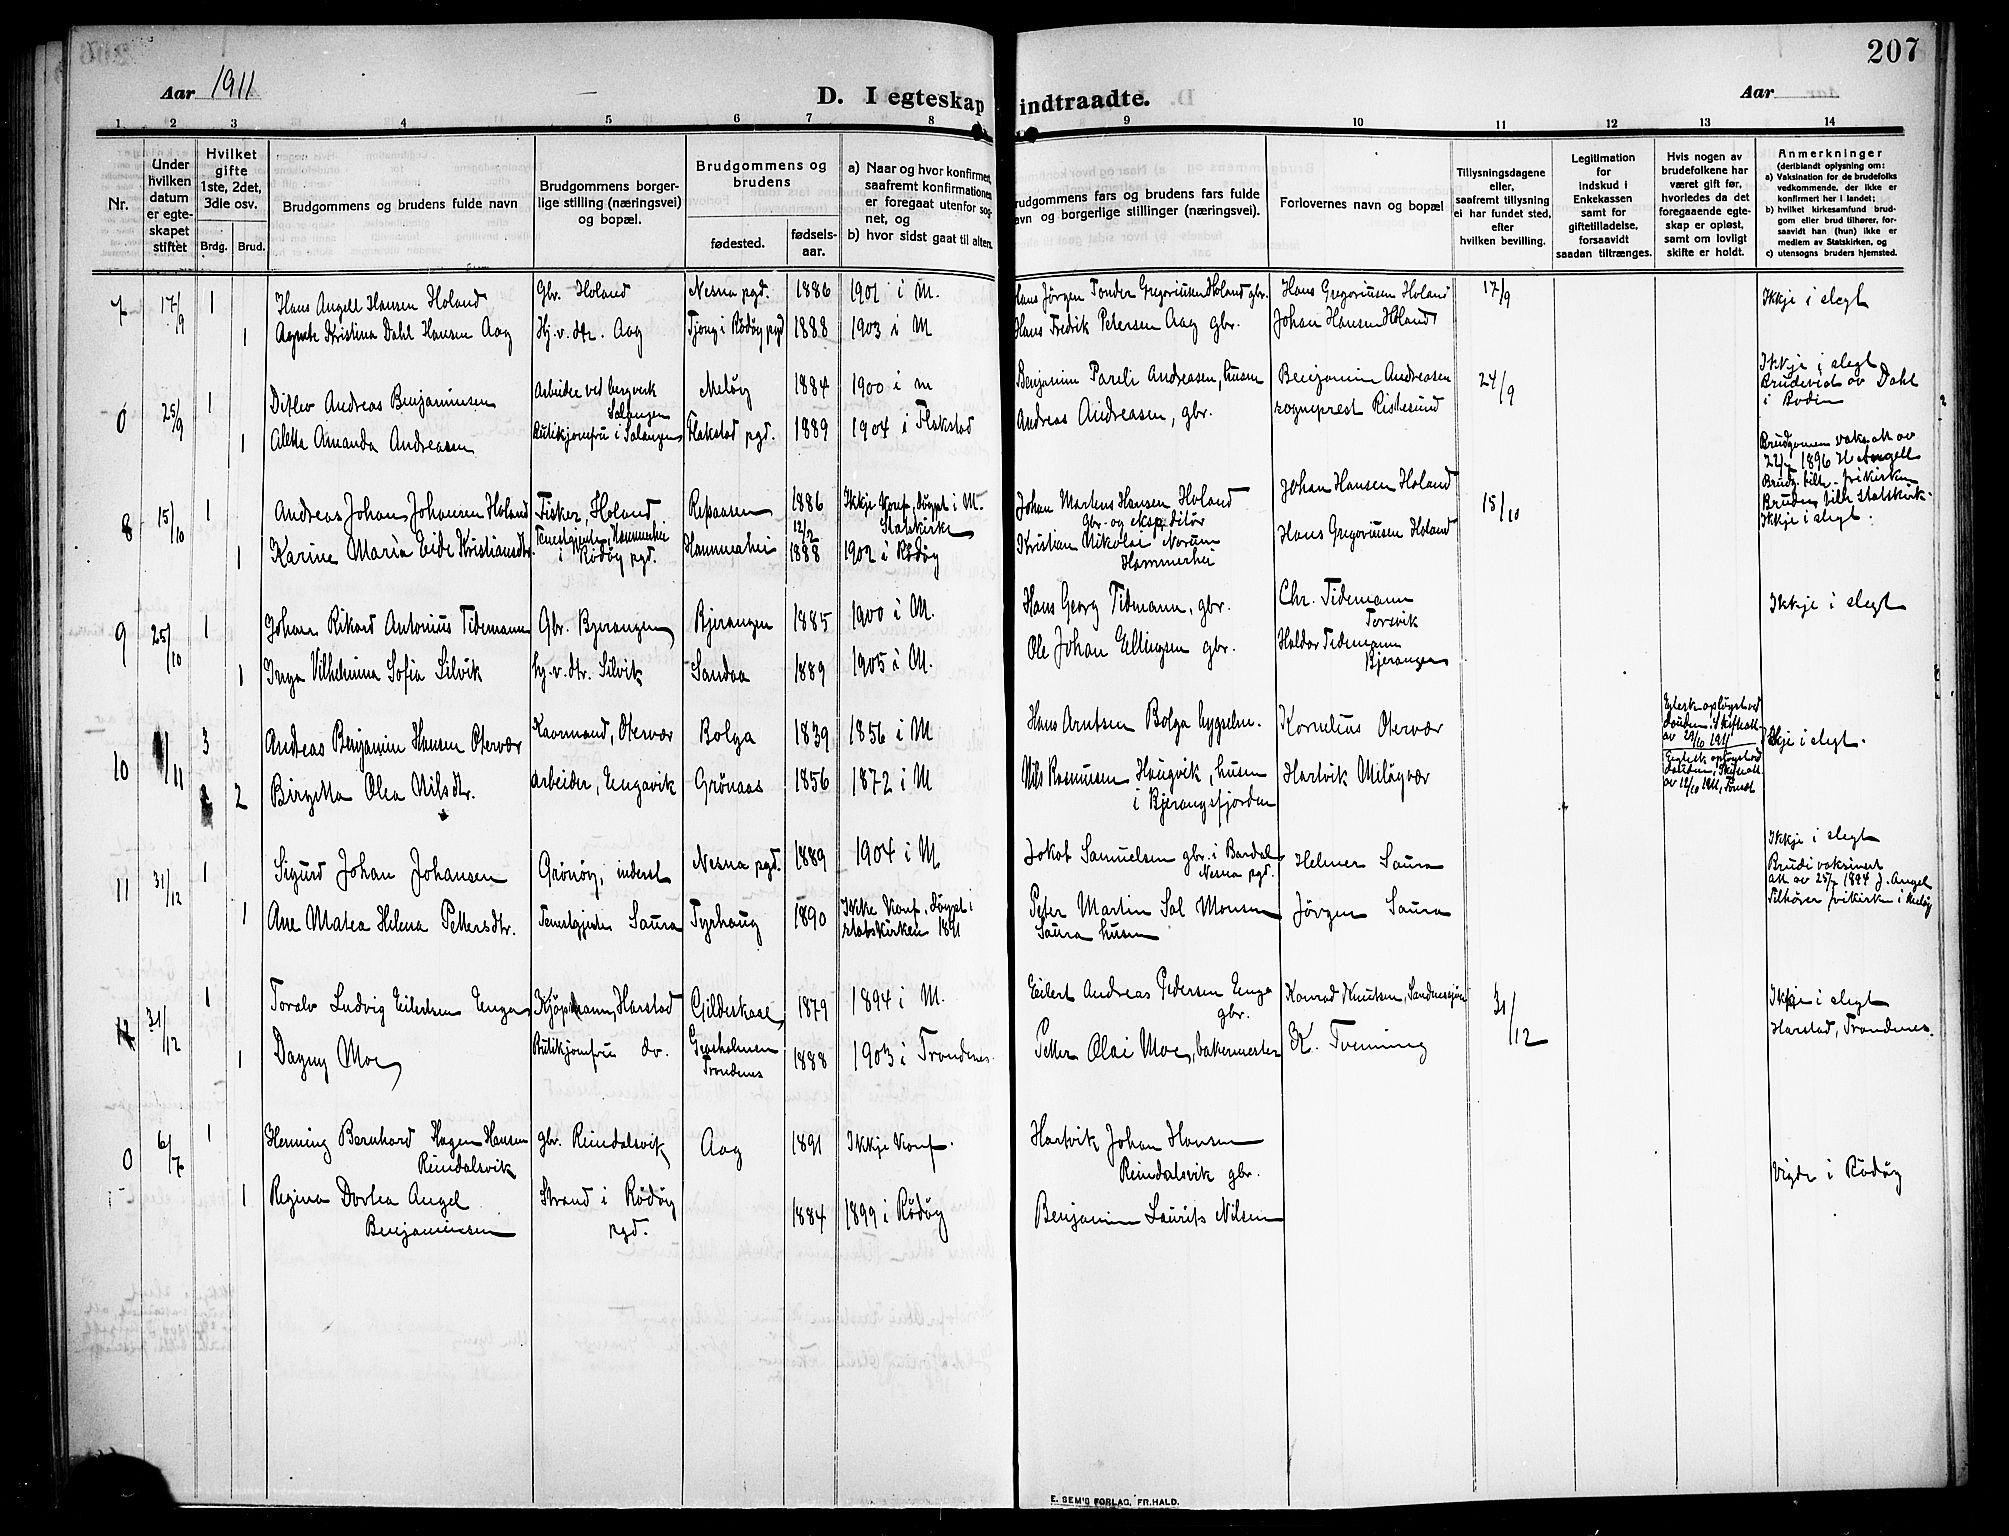 207
Aar 1911
D. I egteskap indtraadte.
Aar
1 2 3 4 5 6 7 8 9 10 11 12 13 14
Nr.
Under hvilken datum er egteskapet stiftet
Hvilket gifte 1ste, 2det, 3die osv.
Brdg. Brud.
Brudgommens og brudens fulde navn
Brudgommens borgerlige stilling (næringsvei) og bopæl.
Brudgommens og brudens
fødested.
fødselsaar.
a) Naar og hvor konfirmert, saafremt konfirmationen er foregaat utenfor sognet, og
b) hvor sidst gaat til alters.
Brudgommens fars og brudens fars fulde navn og borgerlige stillinger (næringsvei).
Forlovernes navn og bopæl
Tillysningsdagene eller, saafremt tillysning ei har fundet sted, efter hvilken bevilling.
Legitimation for indskud i Enkekassen samt for giftetilladelse, forsaavidt saadan tiltrænges.
Hvis nogen av brudefolkene har været gift før, hvorledes da det foregaaende egteskap er opløst, samt om lovligt skifte er holdt.
Anmerkninger
(deriblandt oplysning om:
a) Vaksination for de brudefolks vedkommende, der ikke er konfirmert her i landet;
b) hvilket kirkesamfund brudgom eller brud tilhører, forsaavidt han (hun) ikke er medlem av Statskirken, og
c) utensogns bruders hjemsted.
7 17/9 1 Hans Angell Hansen Holand Gbr. Holand Nesna pgd. 1886 1901 i M. Hans Jörgen Tonder Gregoriusen Holand gbr. Hans Gregoriusen Holand 17/9 Ikkje i slegt
1 Agnete Kristina Dahl Hansen Aag Hj.v.dtr. Aag Tjong i Rödöy pgd 1888 1903 i M Hans Fredrik Petersen Aag gbr. Johan Hansen Holand
0 25/9 1 Ditlev Andreas Benjaminsen Arbeider ved bergverk Salangen Meløy 1884 1900 i M Benjamin Pareli Andreasen, husm Benjamin Andreasen 24/9 Ikkje i slegt
Brudevid av Dahl
i Bodin
1 Aletta Amanda Andreasen Butikjomfru i Salangen Flakstad pgd. 1889 1904 i Flakstad Andreas Andreasen, gbr. sogneprest Ristesund
8 15/10 1 Andreas Johan Johansen Holand Fisker, Holand Repaasen 1886 Ikkje Konf., døypt i M. Statskirke Johan Martens Hansen Holand gbr. og ekspeditör Johan Hansen Holand 15/10 Brudgomen vaks. att av
22/7 1896 H Angell
Brudg. tilh. frikirken
Bruden tilh statskirk.
Ikkje i slegt.
1 Karine Maria Eide Kristiansdtr. Tenestgjente, Hammerhei i Rödöy pgd. Hammerhei 12/2 1888 1902 i Rödöy Kristian Nikolai Norum Hammerhei Hans Gregoriusen Holand
9 25/10 1 Johan Rikard Antonius Tidemann Gbr. Bjerangen Bjerangen 1885 1900 i M. Hans Georg Tidmann, gbr. Chr. Tidemann Torsvik Ikkje i slegt
1 Inga Vilhelmina Sofia Silvik Hj.v.dtr. Silvik Sandaa 1889 1905 i M. Ole Johan Ellingsen gbr. Haldor Tidemann Bjerangen
10 /11 3 Andreas Benjamin Hansen Otervær Kaarmand, Otervær Bolga 1839 1856 i M Hans Arntsen Bolga bygselm. Kornelius Otervær Egtesk. opløyst ved
døuden. Skifteatt.
av 29/10 1911 Ikkje i slegt.
2 Birgitta Olea Nilsdtr. arbeider, Engavik Grönaas 1856 1872 i M Nils Rasmusen Haugvik, husm i Bjerangsfjorden Hartvik Meløyvær Egtesk. opløyst ved
døuden, Skifteatt.
av 12/10 1911,
11 31/12 1 Sigurd Johan Johansen Grönöy, inderst Nesna pgd. 1889 1904 i M Jakob Samuelsen gbr. i Bardal Nesna pgd. Helmer Saura Ikkje i slegt
Brudi vaksinert
att av 25/7 1894 J. Angel
Tilhører frikirk i Meløy
1 Ane Matea Helena Pettersdtr. Tenestgjente Saura Tyrhaug 1890 Ikke Konf., døypt i statskirken 1891 Peter Martin Sal Monsen Saura husm Jörgen Saura
12 31/12 1 Toralv Ludvig Eilertsen Enga Kjöpmann, Harstad Gildeskaal 1879 1894 i M. Eilert Andreas Pedersen Enga gbr. Konrad Knutsen, Sandnessjöen 31/12 Ikkje i slegt
Harstad, Trondenes.
1 Dagny Moe Butikjomfru do. Grasholmen Trondenes 1888 1903 i Trondenes. Petter Olai Moe, bakermester K. Tvenning
0 6/7 1 Henning Bernhard Hagen Hansen Reindalsvik gbr. Reindalsvik Aag 1891 Ikkje Konf. Hartvik Johan Hansen Reindalsvik gbr.
1 Regina Dortea Angel Benjaminsen Strand i Rödöy pgd. 1884 1899 i Rödöy Benjamin Laurits Nilsen Vigde i Rödöy
E. SEM'S FORLAG, FR.HALD.